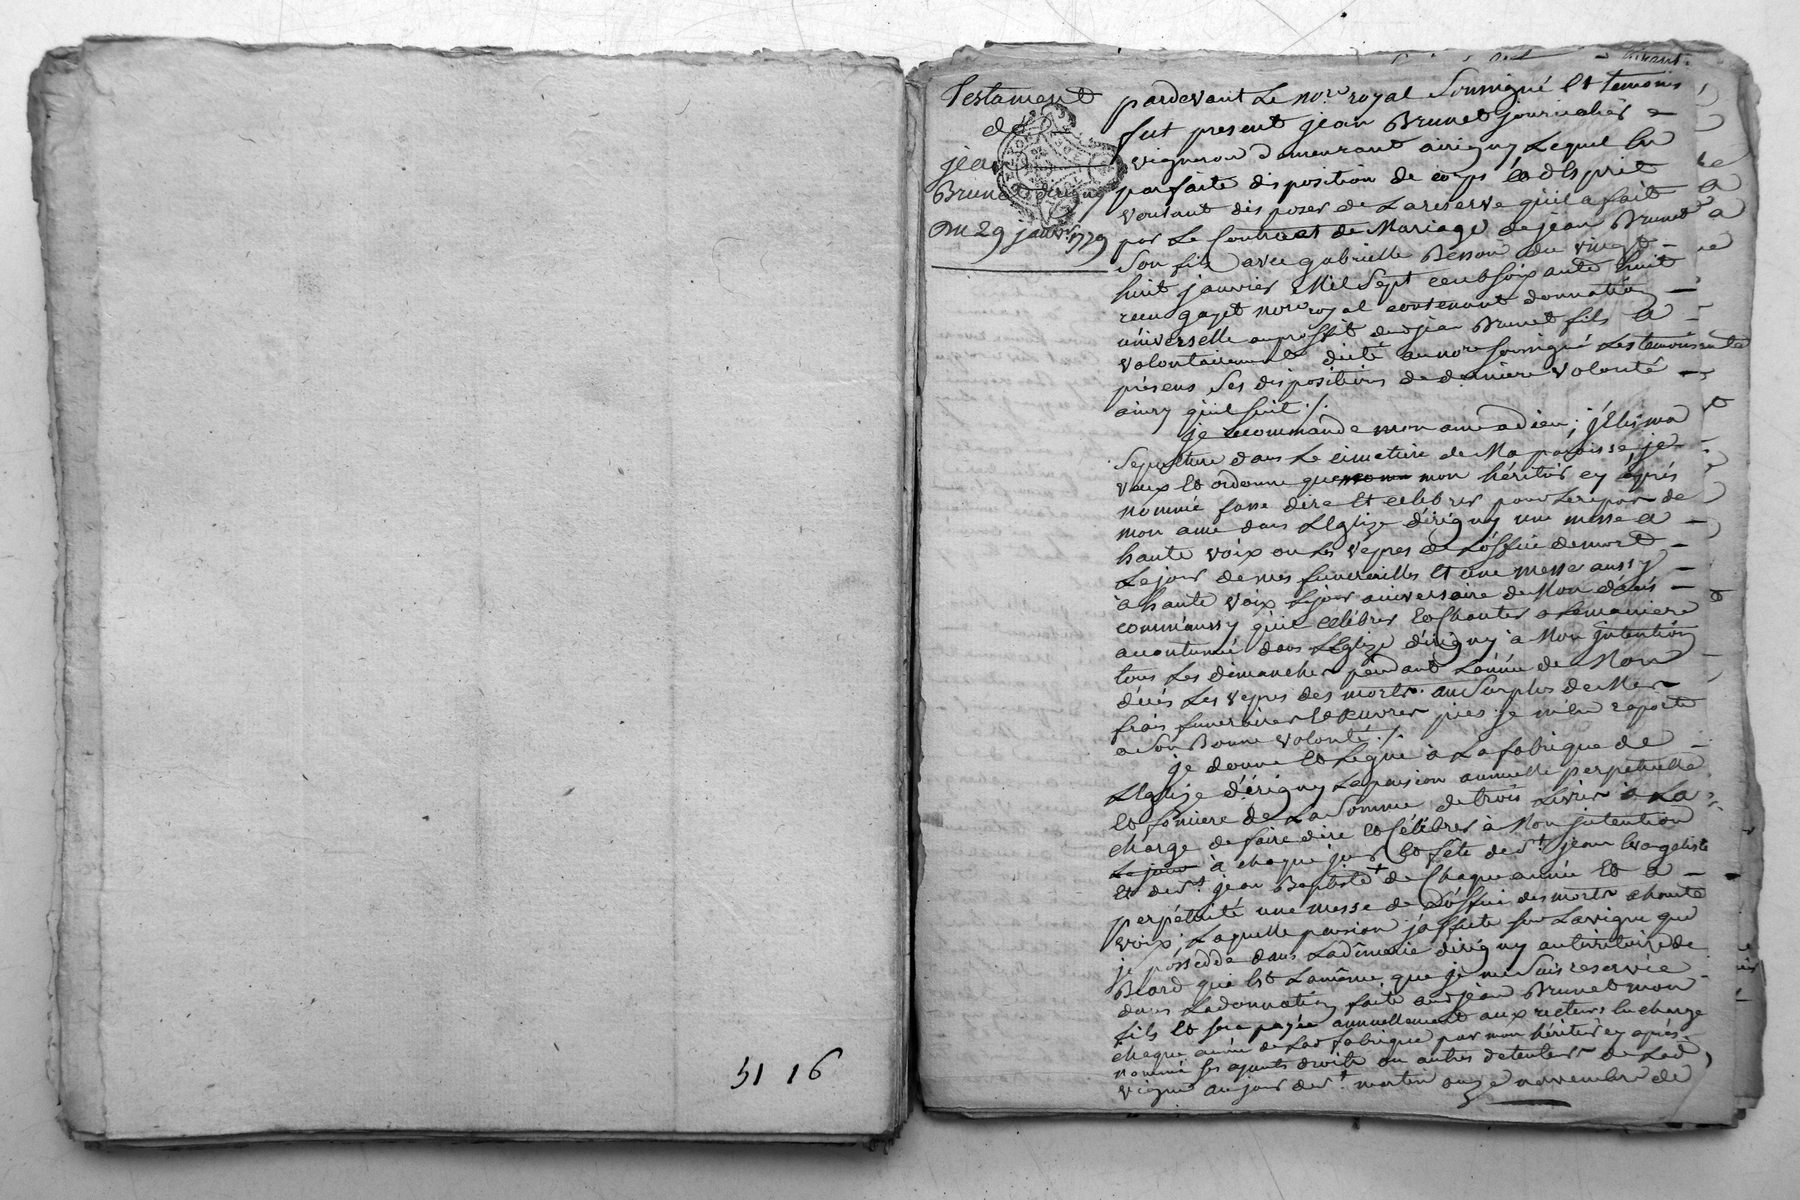 51 16
Testament
de
jean
Brunet d'irigny
Du 29 janvr. 1779
pardevant Le nore. royal Soussigné Et temoins
fut present jean Brunet journalier
vigneron demeurant airigny Lequel En
parfaite disposition de corps Et d'Esprit
voulant disposer de La reserve quil a fait
par Le Contract de Mariage de jean Brunet
Son fils avec gabrielle Besson du vingt
huit janvier Mil Sept cent soixante huit
recu gayet nore royal contenant donnation
universelle au proffit dud jean Brunet fils a
volontairement dicté au nore soussigné Les temoins
présens Ses dispositions de derniere volonté
ainsy quil suit ./.
je recommande mon ame a dieu, j'Elis ma
Sepulture dans Le cimetiere de Ma paroisse, je
veux Et ordonne que mon héritier cy après
nommé fasse dire Et celebrer pour Le repos de
mon ame dans L'Eglize d'irigny une messe a
haute voix ou Les vepres de L'office de mort
Le jour de mes funerailles Et une messe aussy
a haute voix Le jour aniversaire de Mon décés
comm'aussy quil célébrer Et Chanter a La maniere
accoutumée dans L'Eglize d'irigny a Mon intention
tous Les dimanches pendant L'année de Mon
décés Les vepres des morts. au Surplus de Mes
frais funeraires Et Œuvres pies je m'en raporte
a Son Bonne volonté ./.
je donne Et Legue à La fabrique de
L'Eglize d'irigny La pension annuelle perpetuelle
Et fonciere de La Somme de trois Livres a La
charge de faire dire Et Célébrer à Mon intention
à chaque jour Et fete de St. jean Evangeliste
Et de St. jean Baptiste de Chaque année Et a
perpétuité une messe de L'office des morts a haute
voix, Laquelle pension j'affecte sur La vigne que
je possedde dans La dîmerie d'irigny au territoire de
Beard qui Est La même que je me suis reservée
dans La donnation faite aud jean Brunet mon
fils Et sera payée annuellement aux recteurs En charge
chaque année de Lad fabrique par mon héritier cy après
nommé ses ayants droits ou autres detenteurs de Lad
vigne au jour de St. martin onze novembre de